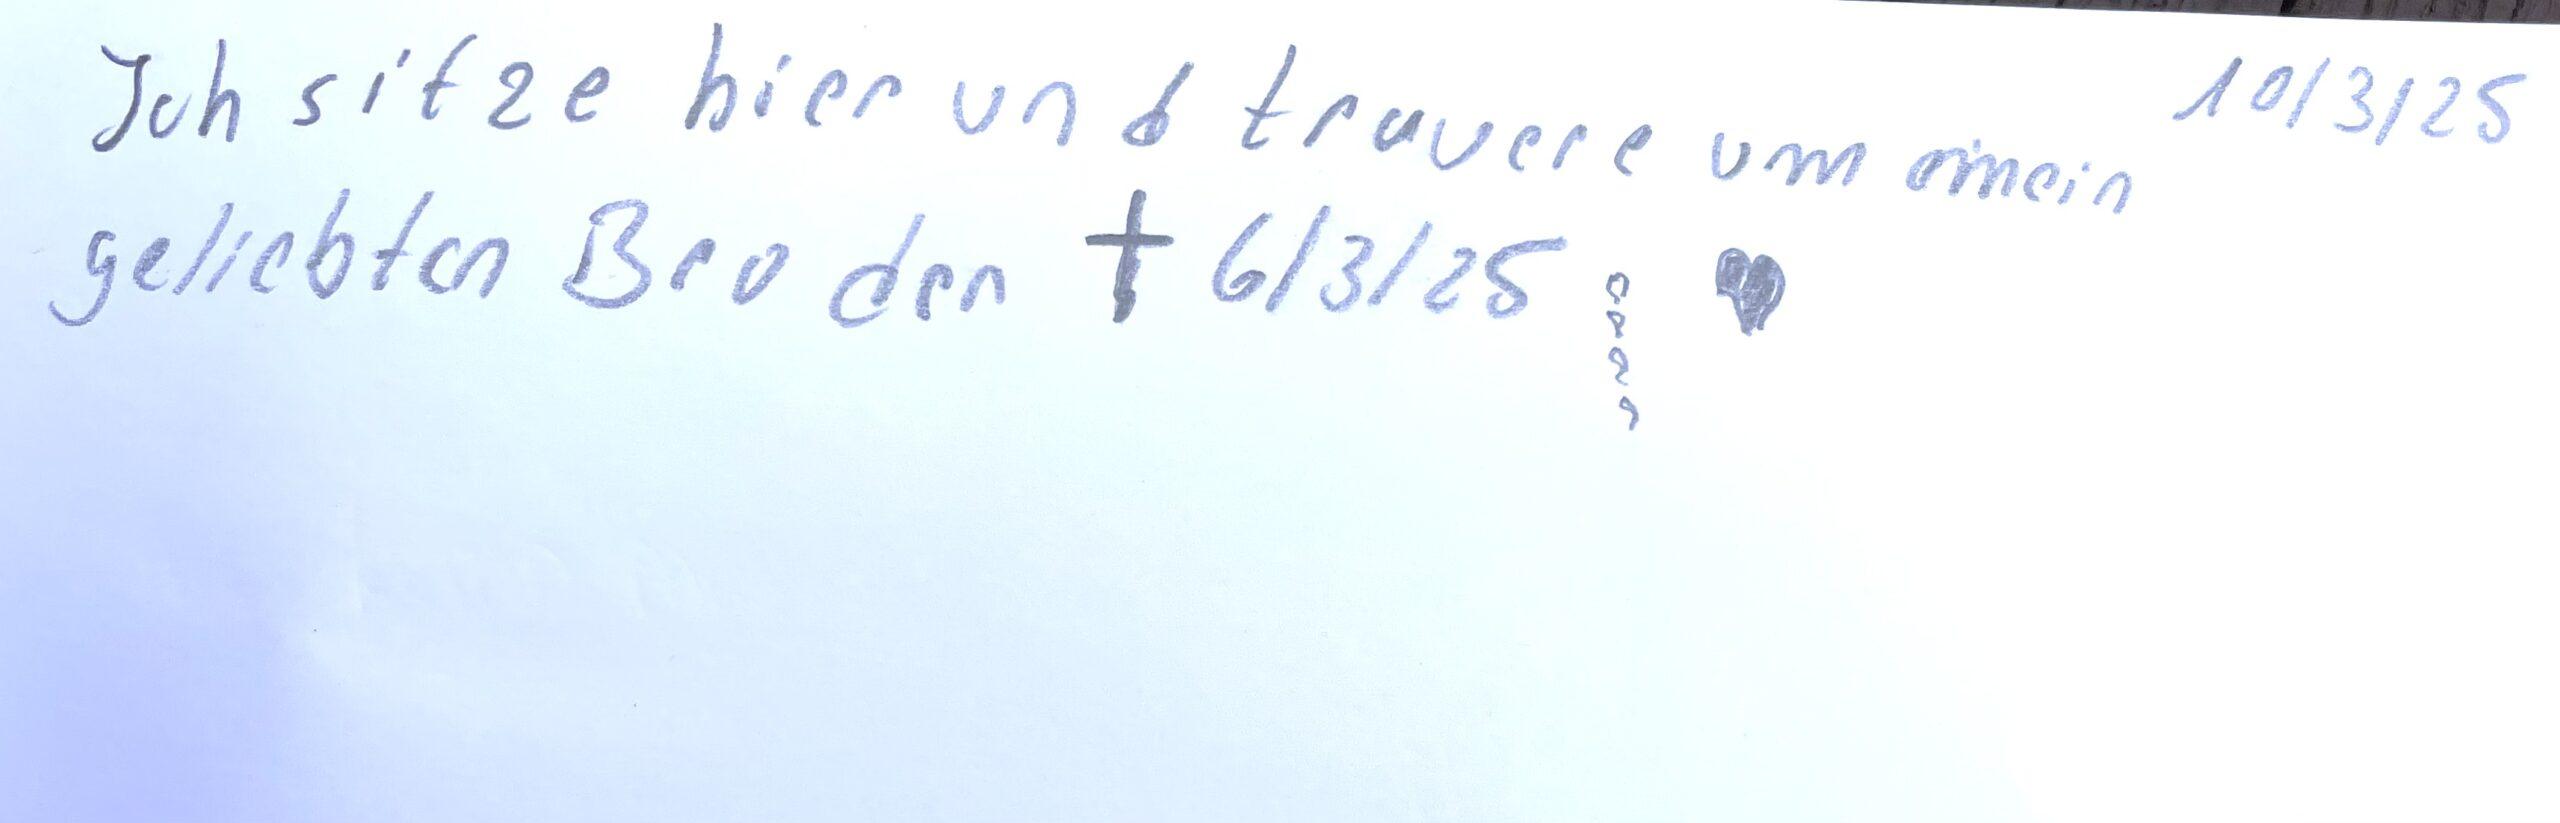 Ich sitze hier und trauere um mein 10/3/25
geliebten Bro den † 6/3/25 ♥